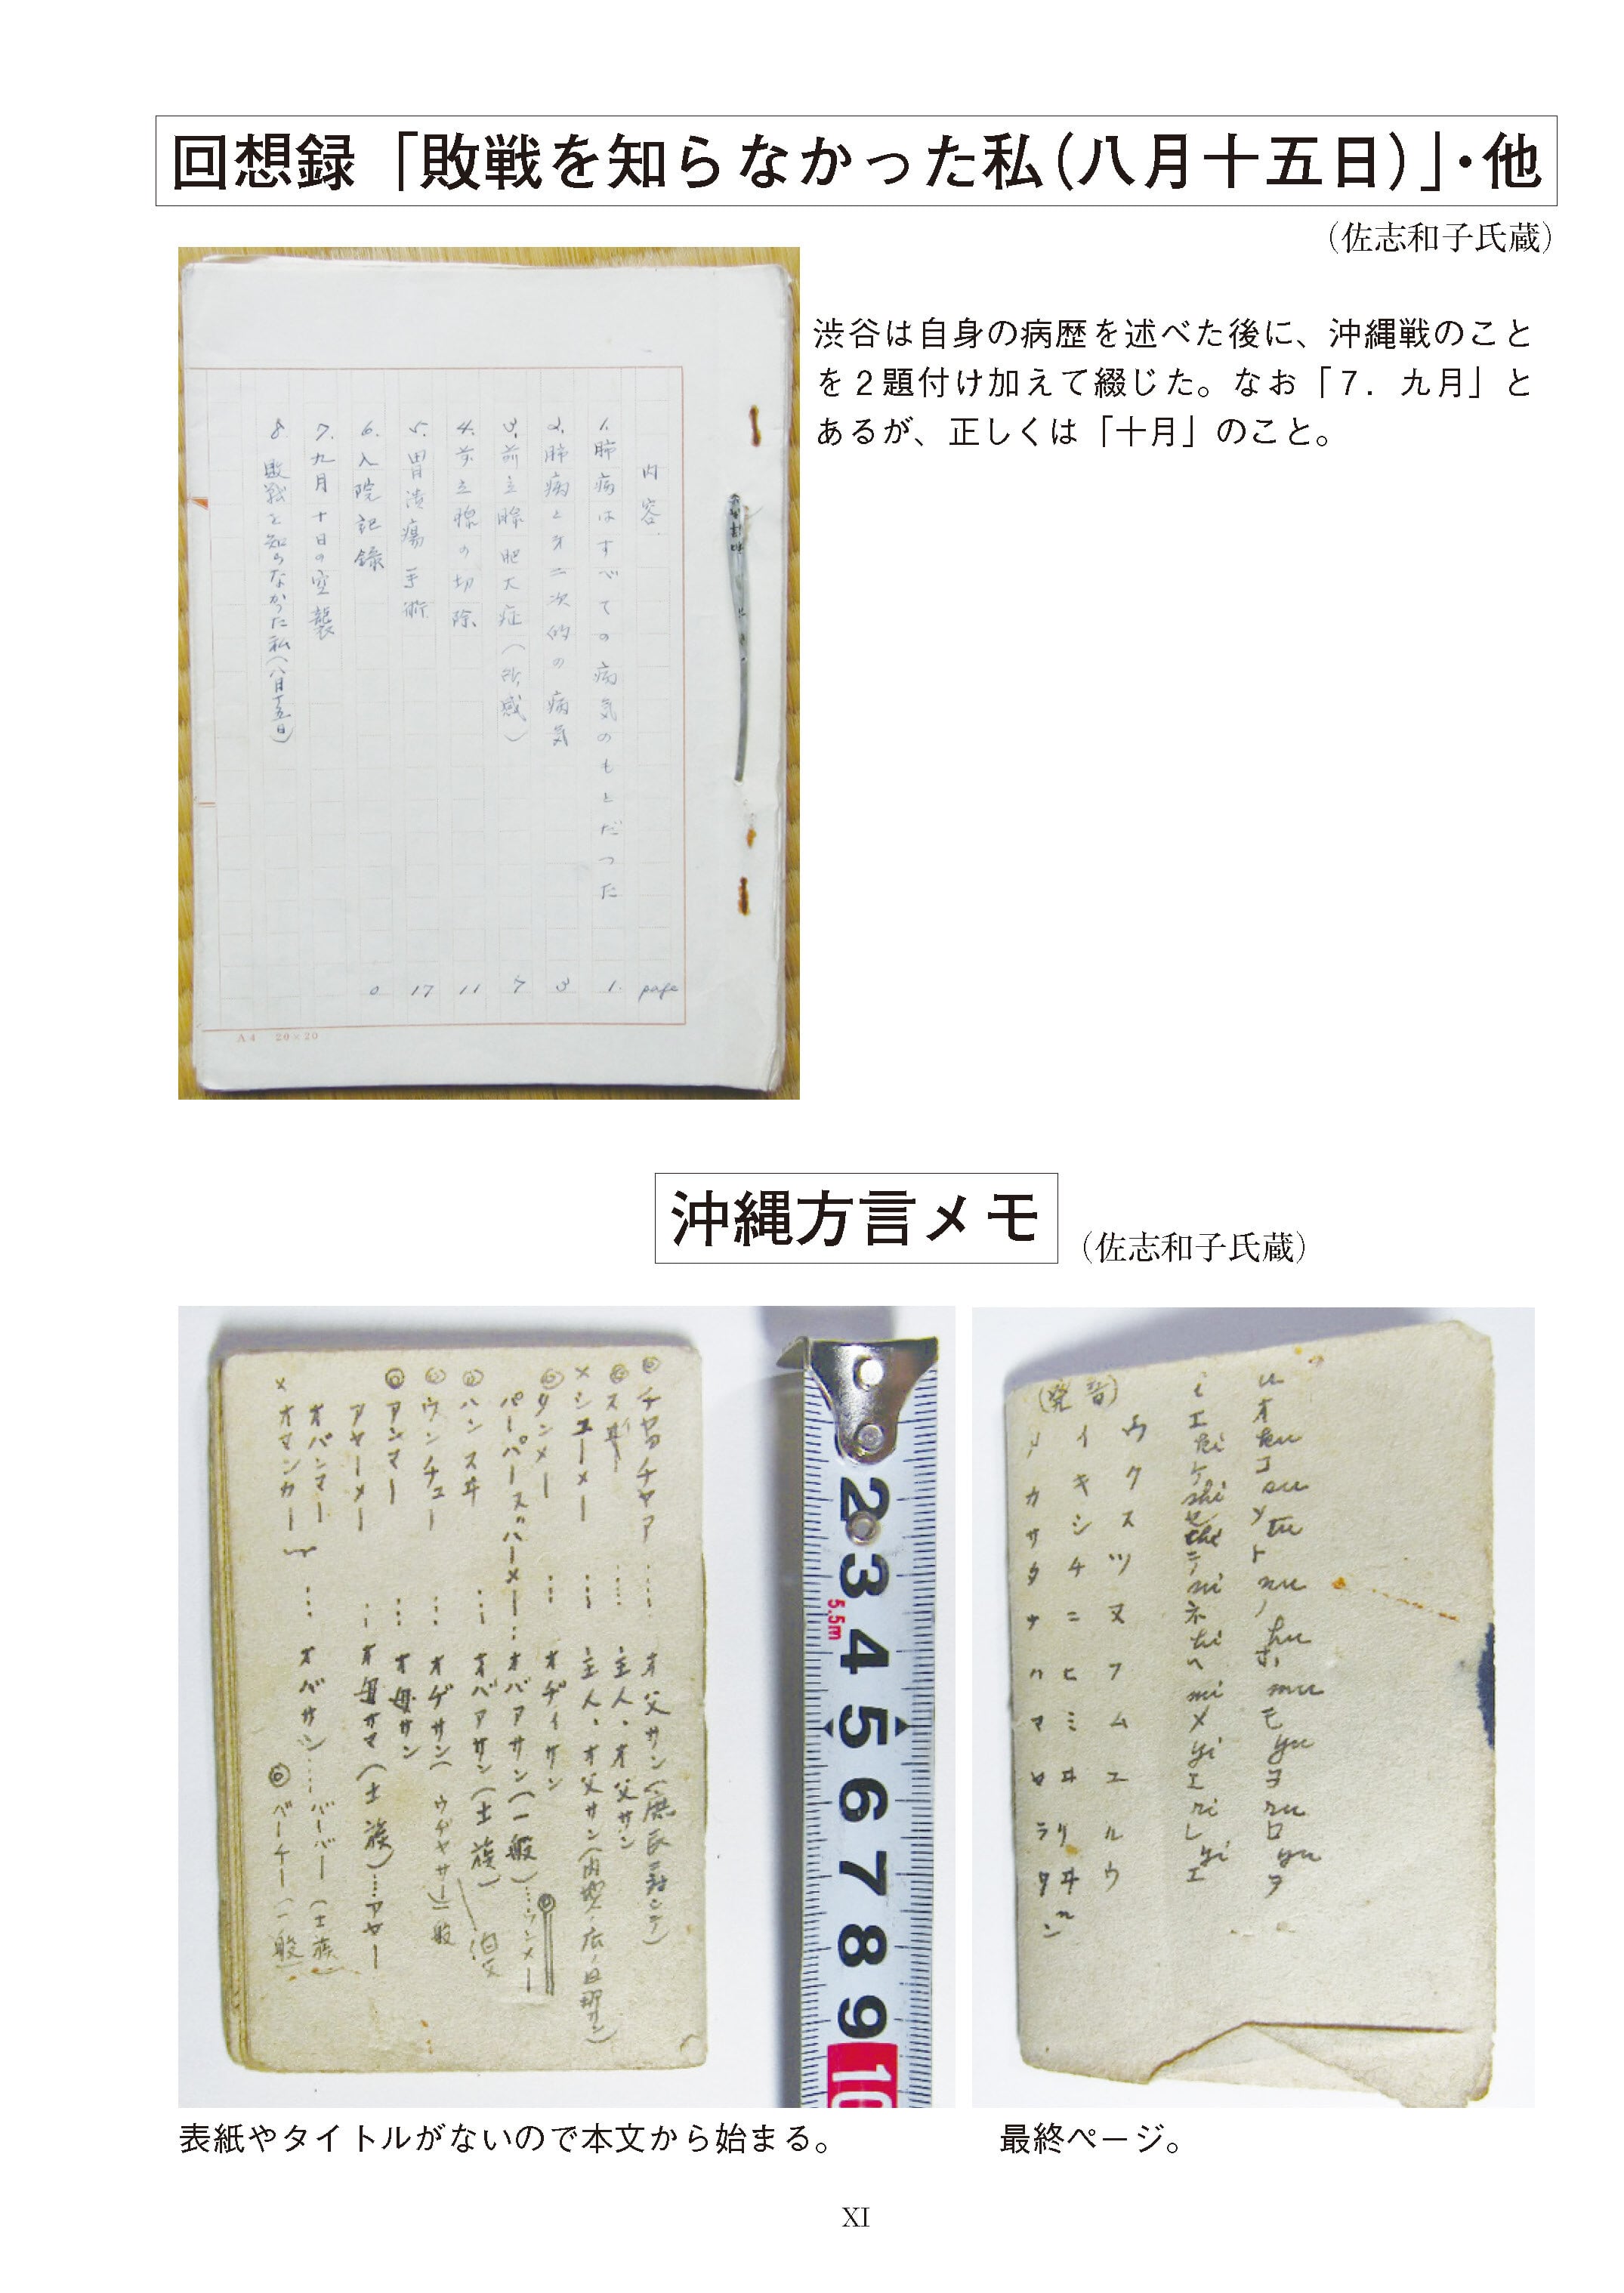 回想録「敗戦を知らなかった私（八月十五日）」・他
（佐志和子氏蔵）
渋谷は自身の病歴を述べた後に、沖縄戦のこと
を２題付け加えて綴じた。なお「７．九月」と
あるが、正しくは「十月」のこと。
内容 page
1. 肺病はすべての病気のもとだつた 1.
2. 肺病と才二次的の病気 3
3. 前立腺肥大症（所感） 7
4. 前立腺の切除 11
5. 胃潰瘍手術 17
6. 入院記録 0
7. 九月十日の空襲
8. 敗戦を知らなかった私（八月十五日）
A4 20×20
沖縄方言メモ
（佐志和子氏蔵）
オ父サン
主人、オ父サン
×シユーメー …… 主人、オ父サン
タンメー …… オヂイサン
オバアサン（一般）……ウンメー
ハンスヰ …… オバアサン（士族）
ウンチュー
アンマー …… オ母サン
アヤーメー …… オ母サマ（士族）……アヤー
オバンマー
×オマンカー …… オバサン …… バーバー（士族）
ベーチー（一般）
2
3
5.5m
4
5
6
7
8
9
10
u ku su tu nu hu mu yu ru yu
オ コ ソ ト ノ ホ モ ヨ ロ ヲ
i ki shi chi ni hi mi yi ri yi
エ ケ セ テ ネ ヘ メ エ レ エ
（発音）
ウ ク ス ツ ヌ フ ム ユ ル ウ
イ キ シ チ ニ ヒ ミ ヰ リ ヰ
カ サ タ ナ ハ マ ヤ ラ
n
ン
表紙やタイトルがないので本文から始まる。
最終ページ。
XI